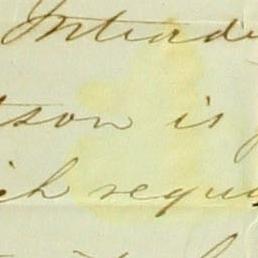 Intrade
tson is
ich requi